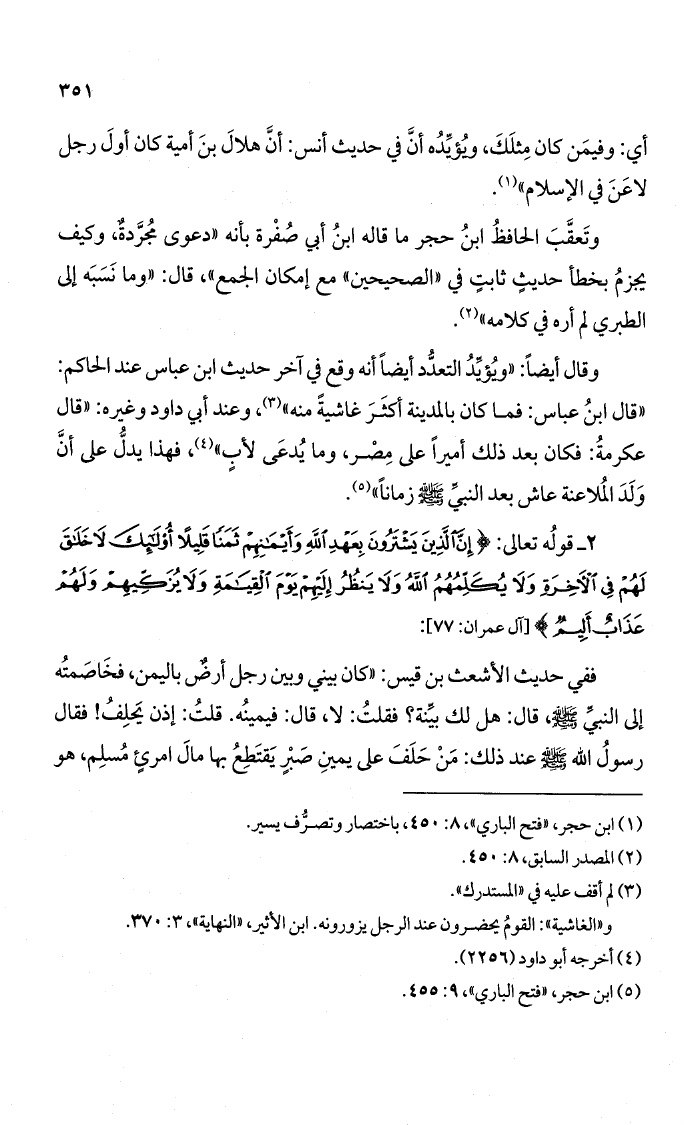 ٣٥١
أي: وفيمَن كان مِثلَكَ، ويُؤيِّدُه أنَّ في حديث أنس: أنَّ هلالَ بنَ أمية كان أولَ رجل
لاعَنَ في الإسلام»(١).
وتَعقَّبَ الحافظُ ابنُ حجر ما قاله ابنُ أبي صُفْرة بأنه «دعوى مُجرَّدةٌ، وكيف
يجزمُ بخطأ حديثٍ ثابتٍ في «الصحيحين» مع إمكان الجمع»، قال: «وما نَسَبَه إلى
الطبري لم أره في كلامه»(٢).
وقال أيضاً: «ويُؤيِّدُ التعدُّد أيضاً أنه وقع في آخر حديث ابن عباس عند الحاكم:
«قال ابنُ عباس: فما كان بالمدينة أكثَرَ غاشيةً منه»(٣)، وعند أبي داود وغيره: «قال
عكرمةُ: فكان بعد ذلك أميراً على مِصْر، وما يُدعَى لأبٍ»(٤)، فهذا يدلُّ على أنَّ
وَلَدَ المُلاعنة عاش بعد النبيِّ ﷺ زماناً»(٥).
٢ـ قولُه تعالى: ﴿إِنَّ ٱلَّذِينَ يَشْتَرُونَ بِعَهْدِ ٱللَّهِ وَأَيْمَٰنِهِمْ ثَمَنًا قَلِيلًا أُوْلَٰٓئِكَ لَا خَلَٰقَ
لَهُمْ فِى ٱلْأَخِرَةِ وَلَا يُكَلِّمُهُمُ ٱللَّهُ وَلَا يَنظُرُ إِلَيْهِمْ يَوْمَ ٱلْقِيَٰمَةِ وَلَا يُزَكِّيهِمْ وَلَهُمْ
عَذَابٌ أَلِيمٌ﴾ [آل عمران: ٧٧]:
ففي حديث الأشعث بن قيس: «كان بيني وبين رجل أرضٌ باليمن، فخَاصَمتُه
إلى النبيِّ ﷺ، قال: هل لك بيِّنة؟ فقلتُ: لا، قال: فيمينُه. قلتُ: إذن يَحلِفُ! فقال
رسولُ الله ﷺ عند ذلك: مَنْ حَلَفَ على يمينِ صَبْرٍ يَقتَطِعُ بها مالَ امرئٍ مُسلِم، هو
(١) ابن حجر، «فتح الباري»، ٨: ٤٥٠، باختصار وتصرُّف يسير.
(٢) المصدر السابق، ٨: ٤٥٠.
(٣) لم أقف عليه في «المستدرك».
و«الغاشية»: القومُ يحضرون عند الرجل يزورونه. ابن الأثير، «النهاية»، ٣: ٣٧٠.
(٤) أخرجه أبو داود (٢٢٥٦).
(٥) ابن حجر، «فتح الباري»، ٩: ٤٥٥.